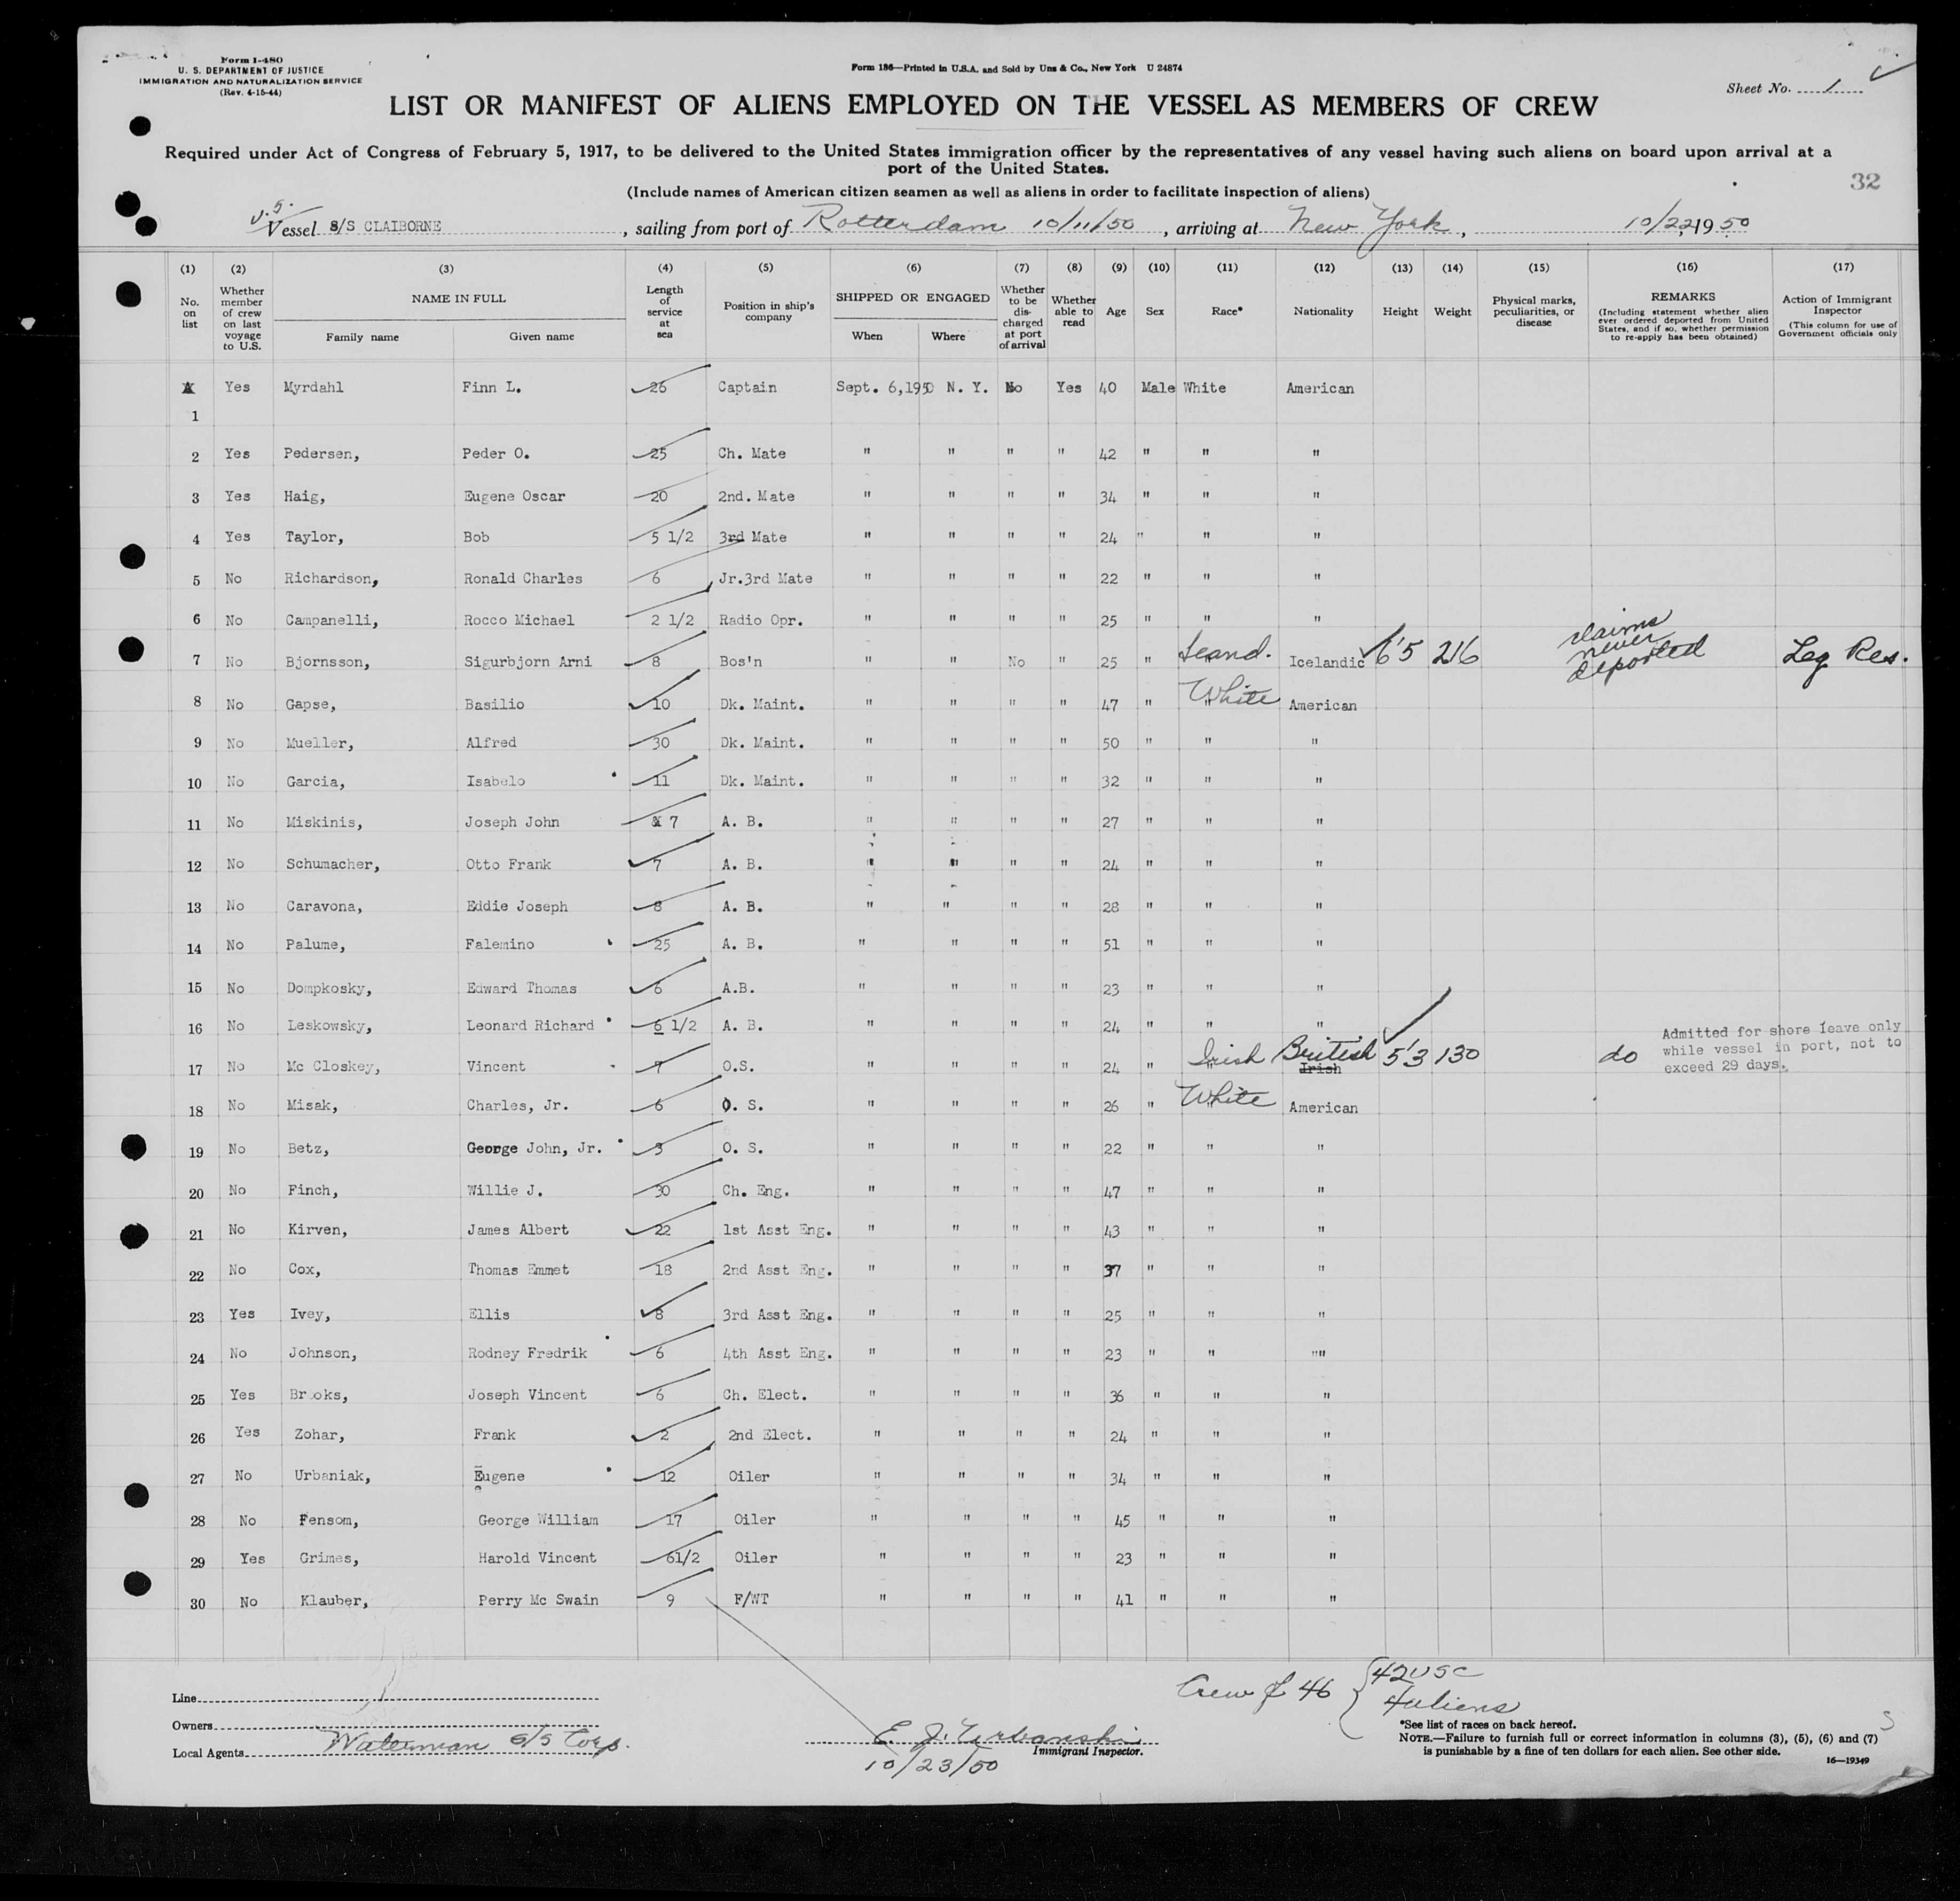 Form I-480
U. S. DEPARTMENT OF JUSTICE
IMMIGRATION AND NATURALIZATION SERVICE
(Rev. 4-15-44)
Form 186—Printed in U.S.A. and Sold by Unz & Co., New York U 24874
Sheet No. 1
LIST OR MANIFEST OF ALIENS EMPLOYED ON THE VESSEL AS MEMBERS OF CREW
Required under Act of Congress of February 5, 1917, to be delivered to the United States immigration officer by the representatives of any vessel having such aliens on board upon arrival at a
port of the United States.
(Include names of American citizen seamen as well as aliens in order to facilitate inspection of aliens)
32
U.S.
Vessel S/S CLAIBORNE, sailing from port of Rotterdam 10/11/50, arriving at New York, 10/22, 1950
(1) (2) (3) (4) (5) (6) (7) (8) (9) (10) (11) (12) (13) (14) (15) (16) (17)
No. on list
Whether member of crew on last voyage to U.S.
NAME IN FULL
Family name Given name
Length of service at sea
Position in ship's company
SHIPPED OR ENGAGED
When Where
Whether to be discharged at port of arrival
Whether able to read
Age
Sex
Race*
Nationality
Height
Weight
Physical marks, peculiarities, or disease
REMARKS
(Including statement whether alien ever ordered deported from United States, and if so, whether permission to re-apply has been obtained)
Action of Immigrant Inspector
(This column for use of Government officials only
1 Yes Myrdahl Finn L. 26 Captain Sept. 6,1950 N. Y. No Yes 40 Male White American
2 Yes Pedersen, Peder O. 25 Ch. Mate " " " " 42 " " "
3 Yes Haig, Eugene Oscar 20 2nd. Mate " " " " 34 " " "
4 Yes Taylor, Bob 5 1/2 3rd Mate " " " " 24 " " "
5 No Richardson, Ronald Charles 6 Jr.3rd Mate " " " " 22 " " "
6 No Campanelli, Rocco Michael 2 1/2 Radio Opr. " " " " 25 " " "
7 No Bjornsson, Sigurbjorn Arni 8 Bos'n " " No " 25 " Scand. Icelandic 6'5 216 claims never deported Leg Res.
8 No Gapse, Basilio 10 Dk. Maint. " " " " 47 " White American
9 No Mueller, Alfred 30 Dk. Maint. " " " " 50 " " "
10 No Garcia, Isabelo 11 Dk. Maint. " " " " 32 " " "
11 No Miskinis, Joseph John 7 A. B. " " " " 27 " " "
12 No Schumacher, Otto Frank 7 A. B. " " " " 24 " " "
13 No Caravona, Eddie Joseph 8 A. B. " " " " 28 " " "
14 No Palume, Falemino 25 A. B. " " " " 51 " " "
15 No Dompkosky, Edward Thomas 6 A.B. " " " " 23 " " "
16 No Leskowsky, Leonard Richard 6 1/2 A. B. " " " " 24 " " "
17 No Mc Closkey, Vincent 7 O.S. " " " " 24 " Irish British Irish 5'3 130 do Admitted for shore leave only while vessel in port, not to exceed 29 days.
18 No Misak, Charles, Jr. 6 O. S. " " " " 26 " White American
19 No Betz, George John, Jr. 3 O. S. " " " " 22 " " "
20 No Finch, Willie J. 30 Ch. Eng. " " " " 47 " " "
21 No Kirven, James Albert 22 1st Asst Eng. " " " " 43 " " "
22 No Cox, Thomas Emmet 18 2nd Asst Eng. " " " " 37 " " "
23 Yes Ivey, Ellis 8 3rd Asst Eng. " " " " 25 " " "
24 No Johnson, Rodney Fredrik 6 4th Asst Eng. " " " " 23 " " ""
25 Yes Brooks, Joseph Vincent 6 Ch. Elect. " " " " 36 " " "
26 Yes Zohar, Frank 2 2nd Elect. " " " " 24 " " "
27 No Urbaniak, Eugene 12 Oiler " " " " 34 " " "
28 No Fensom, George William 17 Oiler " " " " 45 " " "
29 Yes Grimes, Harold Vincent 61/2 Oiler " " " " 23 " " "
30 No Klauber, Perry Mc Swain 9 F/WT " " " " 41 " " "
Crew of 46 { 42 USC
4 aliens
Line
Owners
Local Agents Waterman S/S Corp.
E. J. Urbanski
Immigrant Inspector.
10/23/50
*See list of races on back hereof.
NOTE.—Failure to furnish full or correct information in columns (3), (5), (6) and (7)
is punishable by a fine of ten dollars for each alien. See other side.
16—19349